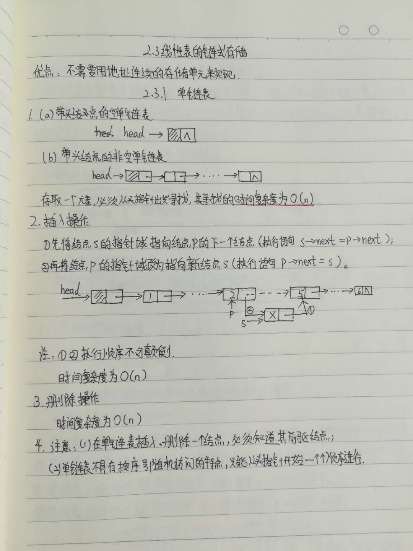 2.3 线性表的链式存储
优点:不需要用地址连续的存储单元来实现.
2.3.1 单链表
1. (a) 带头结点的空单链表
head head → ∧
(b) 带头结点的非空单链表
head → → → ··· → ∧
存取一个元素,必须从头指针出发寻找,其寻找的时间复杂度为O(n)
2. 插入操作
①先将结点s的指针域指向结点p的下一个结点(执行语句 s→next = p→next);
②再将结点p的指针域改为指向新结点s(执行语句 p→next = s)。
head → → 1 → ··· → 2 ··· 5 → ··· → ∧
p ② ①
s → X
注:①②执行顺序不可颠倒.
时间复杂度为O(n)
3. 删除操作
时间复杂度为O(n)
4. 注意:(1)在单链表插入、删除一个结点,必须知道其前驱结点;
(2)单链表不具有按序号随机访问的特点,只能从头指针开始一个个顺序进行.